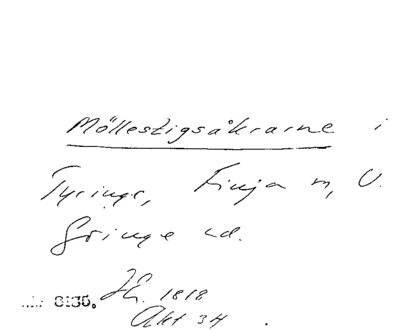 Möllestigsåkrarne i
Tyringe, Finja sn, V.
Göinge hd.
8136. JH. 1818
Akt 34.